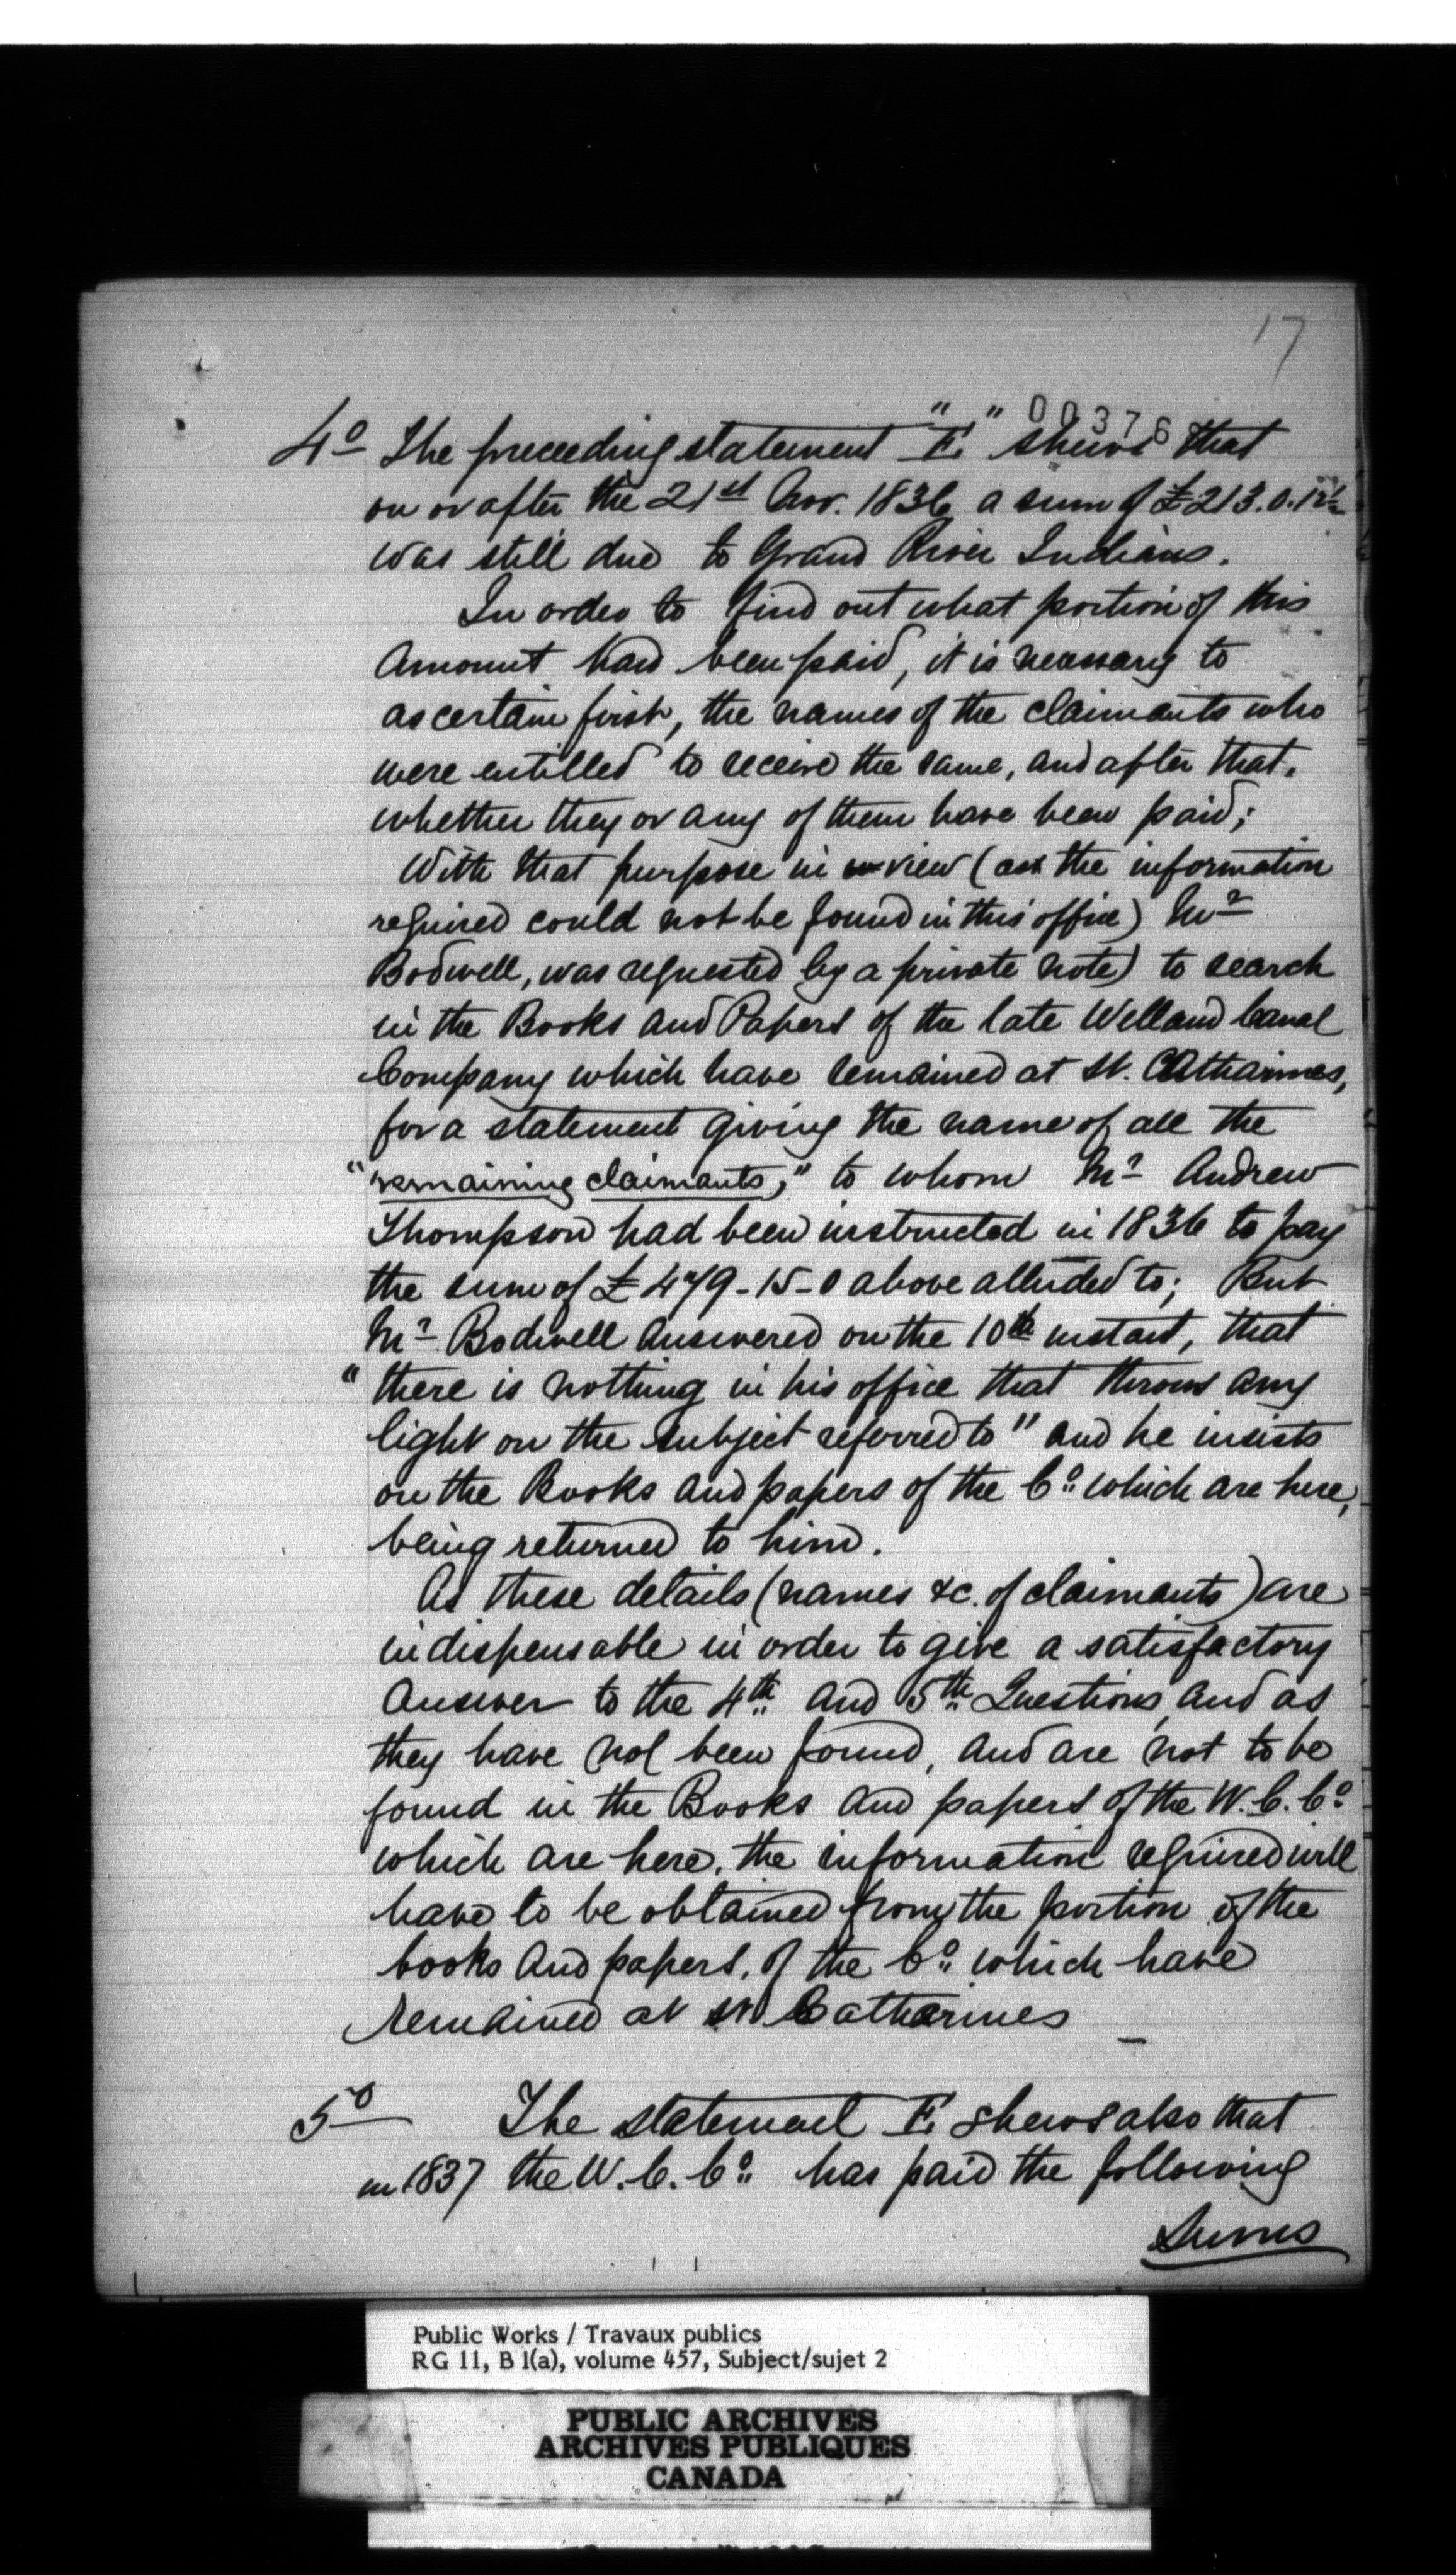 17
00376
4º The preceeding statement "E" shews that
on or after the 21st Nov. 1836 a sum of £213.0.1½
was still due to Grand River Indians.
In order to find out what portion of this
amount had been paid, it is necessary to
ascertain first, the names of the claimants who
were entitled to receive the same, and after that,
whether they or any of them have been paid;
With that purpose in view (as the information
required could not be found in this office) Mr
Bodwell, was requested by a private note to search
in the Books and Papers of the late Welland Canal
Company which have remained at St. Catharines,
for a statement giving the name of all the
"remaining claimants," to whom Mr Andrew
Thompson had been instructed in 1836 to pay
the sum of £479-15-0 above alluded to; But
Mr Bodwell answered on the 10th instant, that
"there is nothing in his office that throws any
light on the subject referred to" and he insists
on the Books and papers of the Co. which are here,
being returned to him.
As these details (names &c. of claimants) are
indispensable in order to give a satisfactory
answer to the 4th and 5th Questions, and as
they have not been found, and are not to be
found in the Books and papers of the W.C.Co.
which are here, the information required will
have to be obtained from the portion of the
books and papers, of the Co. which have
remained at St Catharines _
5º The statement E shews also that
in 1837 the W.C.Co. has paid the following
Sums
Public Works / Travaux publics
RG 11, B 1(a), volume 457, Subject/sujet 2
PUBLIC ARCHIVES
ARCHIVES PUBLIQUES
CANADA